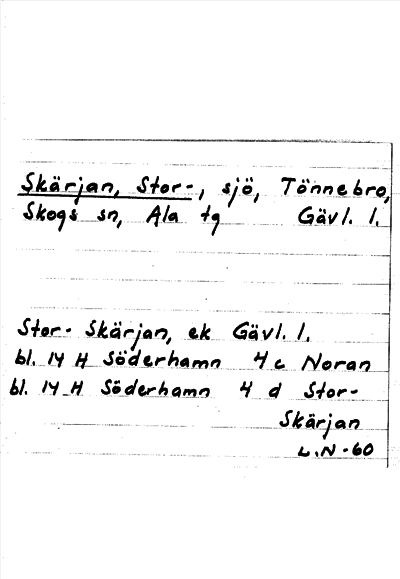 Skärjan, Stor-, sjö, Tönnebro,
Skogs sn, Ala tg Gävl. l.
Stor- Skärjan, ek Gävl. l.
bl. 14 H Söderhamn 4 c Noran
bl. 14 H Söderhamn 4 d Stor-
Skärjan
L.N-60